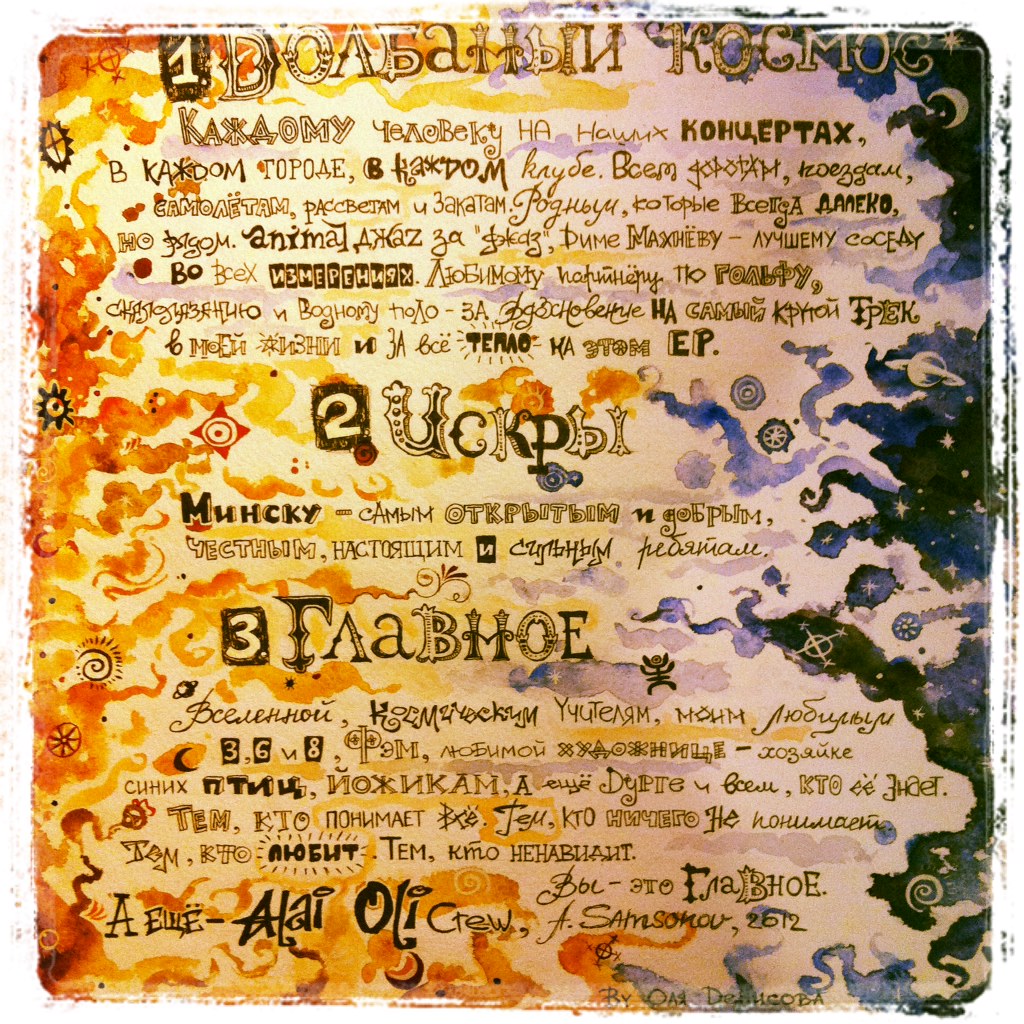 1 Долбаный космос
Каждому человеку на наших концертах,
в каждом городе, в каждом клубе. Всем дорогам, поездам,
самолётам, рассветам и закатам. Родным, которые всегда далеко,
но рядом. Animal Джаz за "джаз", Диме Махнёву - лучшему соседу
во всех измерениях. Любимому партнёру по гольфу,
скалолазению и водному поло - за вдохновение на самый крутой трек
в моей жизни и за всё тепло на этом EP.
2 Искры
Минску - самым открытым и добрым,
честным, настоящим и сильным ребятам.
3 Главное
Вселенной, Космическим Учителям, моим любимым
3, 6 и 8, Фэм, любимой художнице - хозяйке
синих птиц, йожикам, а ещё Дурге и всем, кто её знает.
Тем, кто понимает всё. Тем, кто ничего не понимает.
Тем, кто любит. Тем, кто ненавидит.
Вы - это Главное.
А ещё - Alai Oli Crew, A. Samsonov, 2012
By Оля Денисова